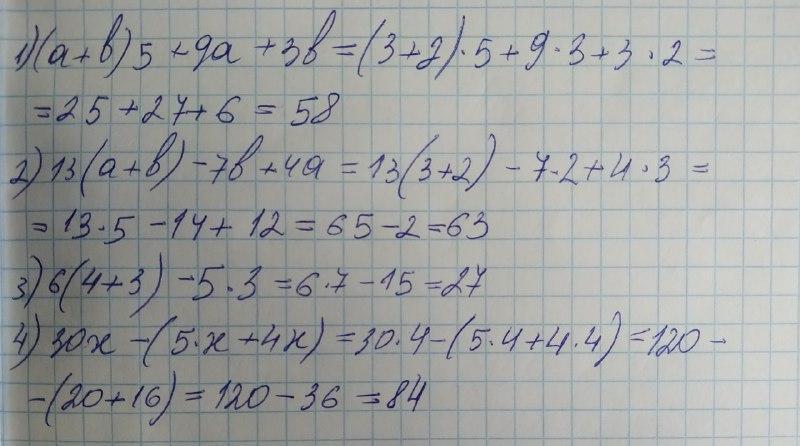 1) (a+b)5 +9a +3b = (3+2)·5+9·3+3·2 =
=25+27+6 = 58
2) 13(a+b) -7b+4a = 13(3+2) - 7·2+4·3 =
= 13·5 -14+ 12 = 65-2=63
3) 6(4+3) -5·3 =6·7-15 =27
4) 30x -(5·x+4x) =30·4-(5·4+4·4) =120-
-(20+16) = 120-36 =84